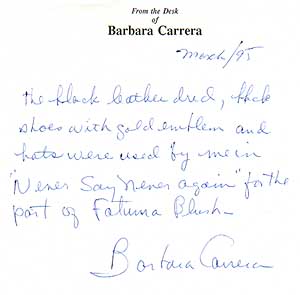 From the Desk
of
Barbara Carrera
March/95
the black leather dred, black
shoes with gold emblem and
hats were used by me in
"Never Say Never again" for the
part of Fatima Blush-
Barbara Carrera